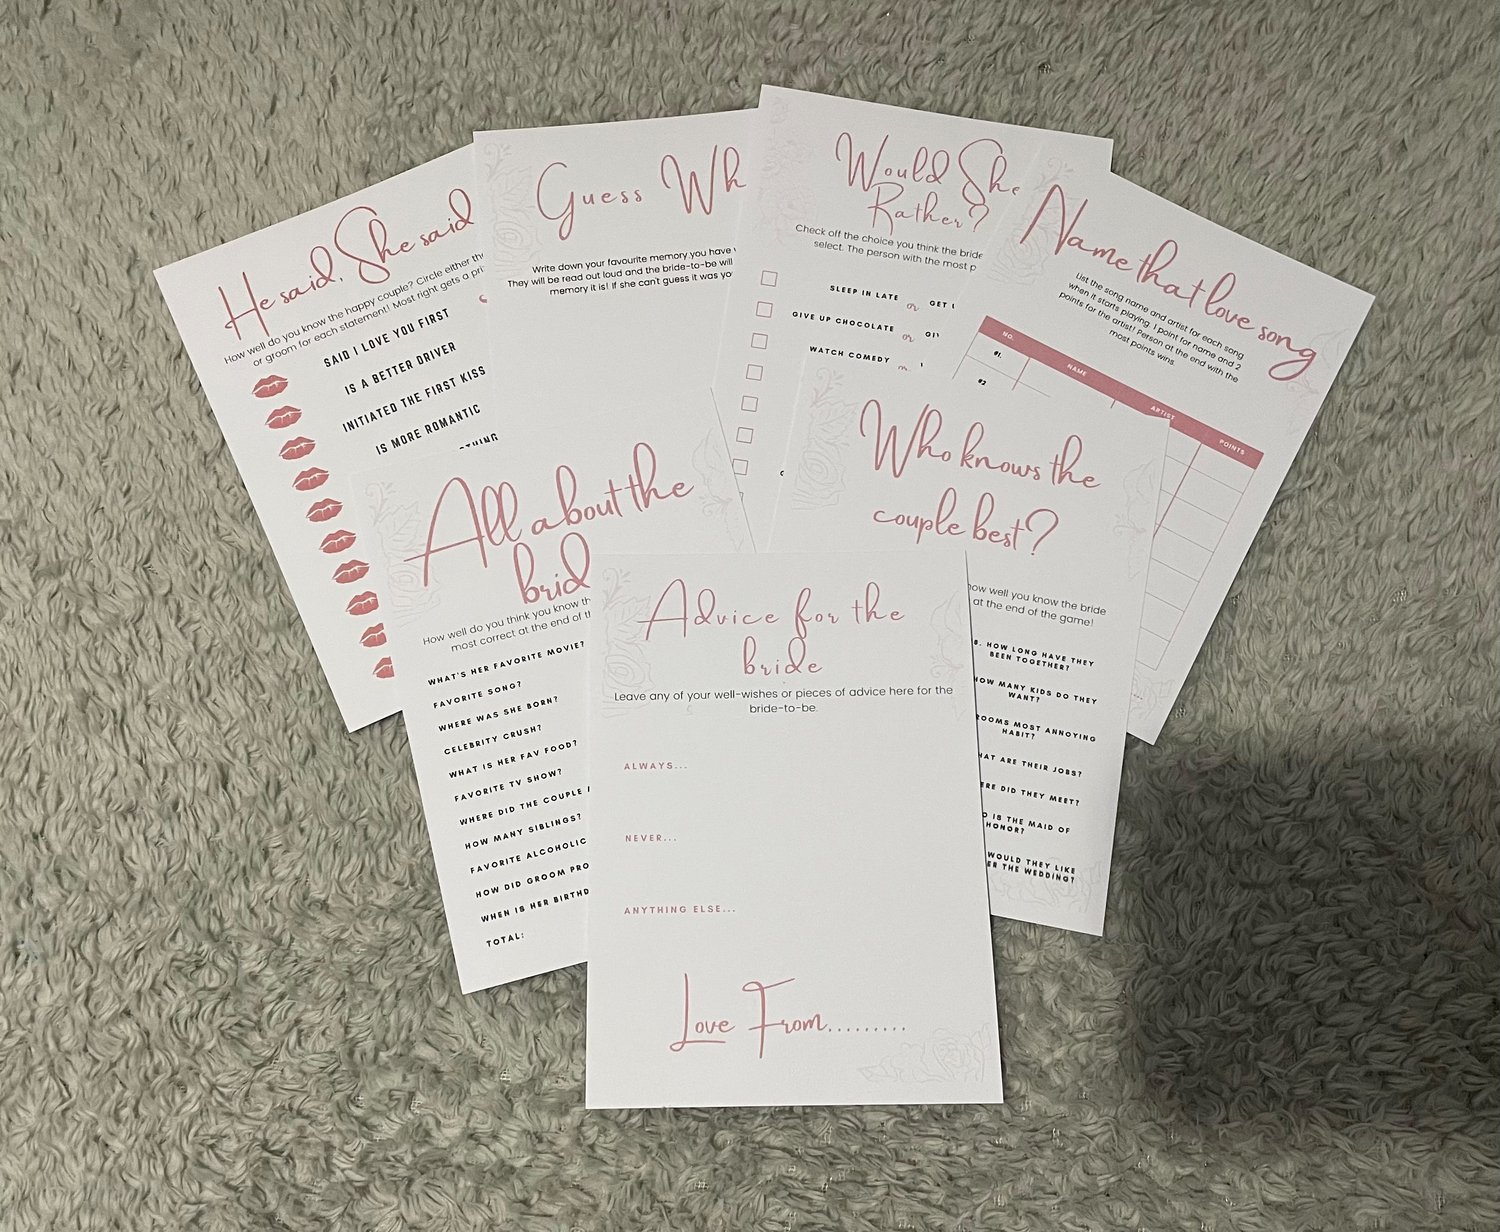 He said, She said
How well do you know the happy couple? Circle either the
or groom for each statement! Most right gets a
SAID I LOVE YOU FIRST
IS A BETTER DRIVER
INITIATED THE FIRST KISS
IS MORE ROMANTIC
Guess
Write down your favourite memory you have
They will be read out loud and the bride-to-be will
memory it is! If she can't guess it was
Would She
Rather?
Check off the choice you think the bride
select. The person with the most
SLEEP IN LATE or GET
GIVE UP CHOCOLATE or
WATCH COMEDY
Name that love song
List the song name and artist for each song
when it starts playing. 1 point for name and 2
points for the artist! Person at the end with the
most points wins.
NO. NAME ARTIST POINTS
#1.
#2
All about the
How well do you think you know the
most correct at the end of
WHAT'S HER FAVORITE MOVIE?
FAVORITE SONG?
WHERE WAS SHE BORN?
CELEBRITY CRUSH?
WHAT IS HER FAV FOOD?
FAVORITE TV SHOW?
WHERE DID THE COUPLE
HOW MANY SIBLINGS?
FAVORITE ALCOHOLIC
HOW DID GROOM
WHEN IS HER
TOTAL:
Who knows the
couple best?
how well you know the bride
at the end of the game!
8. HOW LONG HAVE THEY
BEEN TOGETHER?
HOW MANY KIDS DO THEY
WANT?
MOST ANNOYING
HABIT?
ARE THEIR JOBS?
DID THEY MEET?
IS THE MAID OF
HONOR?
WOULD THEY LIKE
THE WEDDING?
Advice for the
bride
Leave any of your well-wishes or pieces of advice here for the
bride-to-be.
ALWAYS...
NEVER...
ANYTHING ELSE...
Love From.........